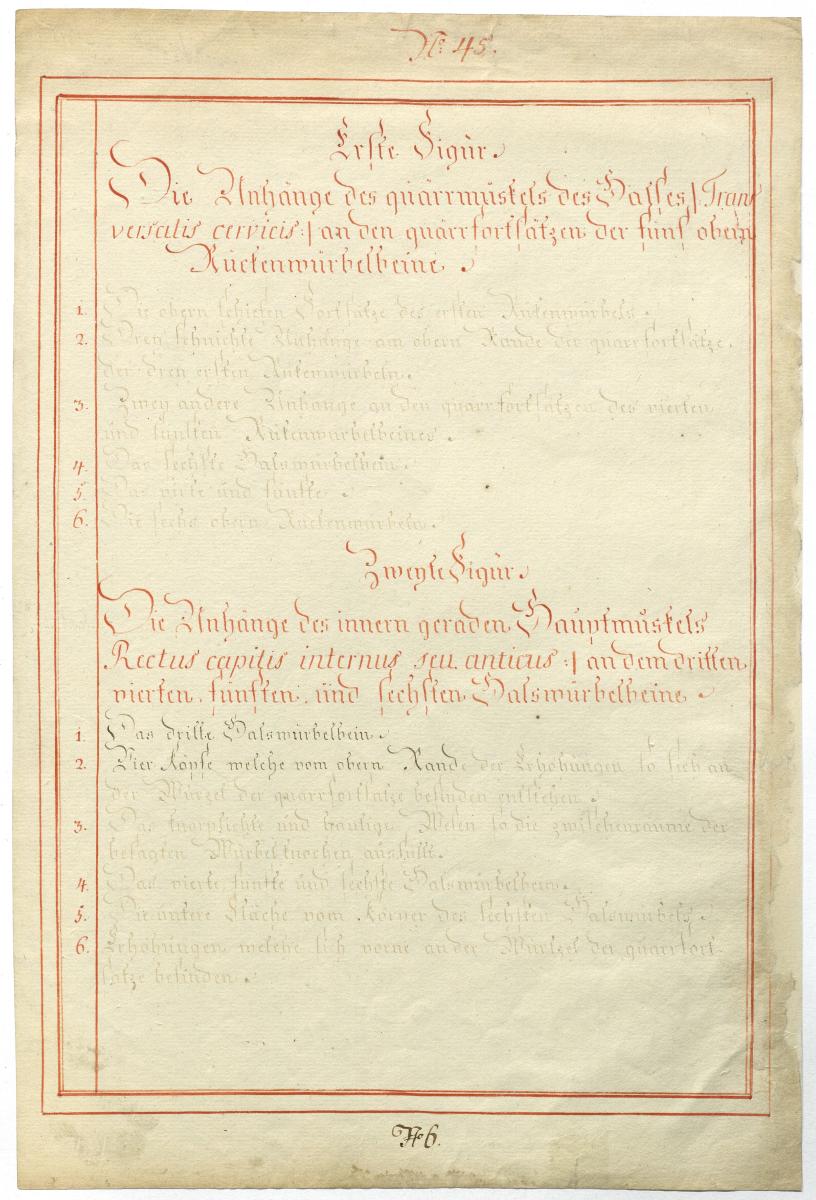 No. 45.
Erste Figur.
Die Anhänge des quärrmuskels des Halses /: Trans
versalis cervicis :/ an den quärrfortsätzen der fünf obern
Ruckenwürbelbeine.
1. Die obern schiefen Fortsätze des ersten Rukenwürbels.
2. Drey sehnichte Anhänge am obern Rande der quarrfortsätze.
der dreŋ ersten Rukenwürbeln.
3. Zwey andere Anhänge an den quarrfortsätzen des vierten
und fünften Rukenwürbelbeines.
4. Das sechste Halswürbelbein.
5. Das virte und fünfte.
6. Die sechs obern Ruckenwürbeln.
Zweyte Figur.
Die Anhänge des innern geraden Hauptmuskels
Rectus capitis internus seu anticus :/ an dem dritten
vierten, fünften, und sechsten Halswürbelbeine.
1. Das dritte Halswürbelbein.
2. Vier Köpfe welche vom obern Rande der Erhöhungen so sich an
der Würzel der quarrfortsätze befinden entstehen.
3. Das knorplichte und hautige Wesen so die zwischenräume der
besagten Würbelknochen ausfüllt.
4. Das vierte, fünfte und sechste Halswürbelbein.
5. Die untere Fläche vom Körper des sechsten Halswürbels.
6. Erhöhungen welche sich vorne an der Würtzel der quarrfort-
sätze befinden.
No 6.